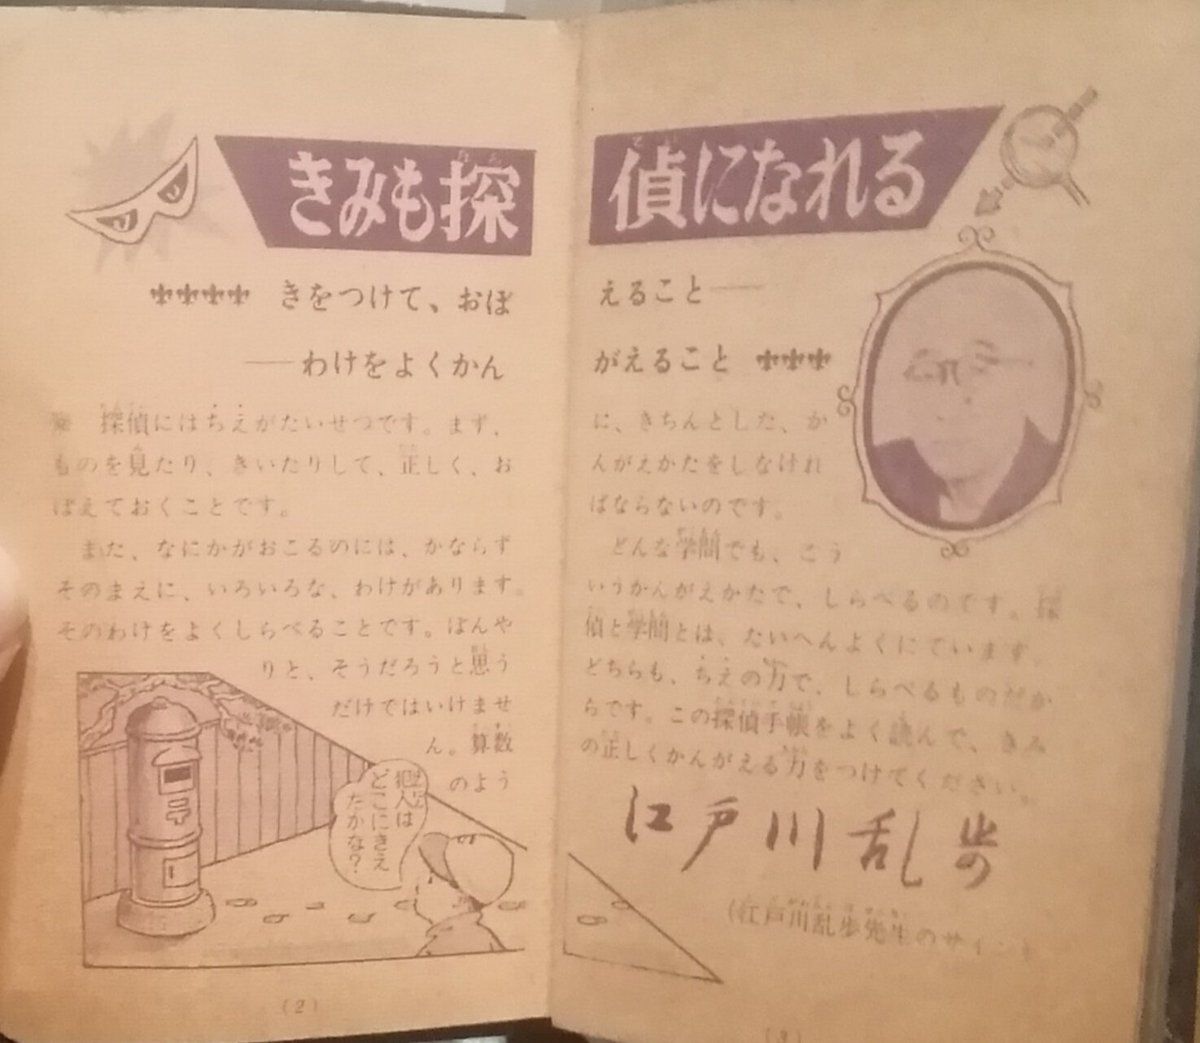 きみも探偵になれる
きをつけて、おぼえること——
——わけをよくかんがえること
探偵にはちえがたいせつです。まず、
ものを見たり、きいたりして、正しく、お
ぼえておくことです。
また、なにかがおこるのには、かならず
そのまえに、いろいろな、わけがあります。
そのわけをよくしらべることです。ぼんや
りと、そうだろうと思う
だけではいけませ
ん。算数
のよう
犯人は
どこにきえ
たかな?
(2)
に、きちんとした、か
んがえかたをしなけれ
ばならないのです。
どんな学問でも、こう
いうかんがえかたで、しらべるのです。探
偵と学問とは、たいへんよくにています。
どちらも、ちえの力で、しらべるものだか
らです。この探偵手帳をよく読んで、きみ
の正しくかんがえる力をつけてください。
江戸川乱歩
(江戸川乱歩先生のサイン
(3)